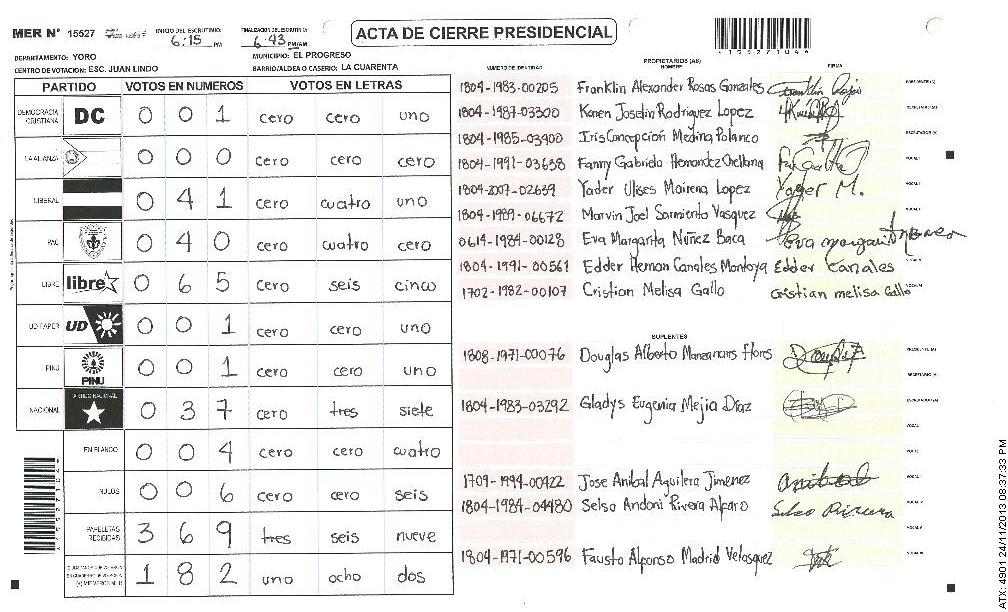 MER N° 15527
INICIO DEL ESCRUTINIO: 6:15 PM
FINALIZACION DEL ESCRUTINIO: 6:43 PM/AM
ACTA DE CIERRE PRESIDENCIAL
DEPARTAMENTO: YORO
MUNICIPIO: EL PROGRESO
CENTRO DE VOTACION: ESC. JUAN LINDO
BARRIO/ALDEA O CASERIO: LA CUARENTA
PARTIDO VOTOS EN NUMEROS VOTOS EN LETRAS
DEMOCRACIA CRISTIANA DC 0 0 1 cero cero uno
LA ALIANZA 0 0 0 cero cero cero
LIBERAL 0 4 1 cero cuatro uno
PAC 0 4 0 cero cuatro cero
LIBRE libre 0 6 5 cero seis cinco
UD FAPER UD 0 0 1 cero cero uno
PINU PINU 0 0 1 cero cero uno
NACIONAL PARTIDO NACIONAL 0 3 7 cero tres siete
EN BLANCO 0 0 4 cero cero cuatro
NULOS 0 0 6 cero cero seis
PAPELETAS RECIBIDAS 3 6 9 tres seis nueve
1 8 2 uno ocho dos
NUMERO DE IDENTIDAD PROPIETARIOS (AS) NOMBRE FIRMA
1804-1983-00205 Franklin Alexander Rosas Gonzales PRESIDENTE(A)
1804-1987-03300 Karen Joselin Rodriguez Lopez SECRETARIO (A)
1804-1985-03900 Iris Concepcion Medina Polanco ESCRUTADOR (A)
1804-1991-03638 Fanny Gabriela Hernandez Orellana VOCAL I
1804-2007-02639 Yader Ulises Mairena Lopez Yader M.
1804-1989-06672 Marvin Joel Sarmiento Vasquez
0614-1984-00128 Eva Margarita Nuñez Baca Eva margarit
1804-1991-00561 Edder Hernan Canales Montoya Edder Canales
1702-1982-00107 Cristian Melisa Gallo cristian melisa Gallo
SUPLENTES
1808-1971-00076 Douglas Alberto Manzanares Flores PRESIDENTE (A)
SECRETARIO (A)
1804-1983-03292 Gladys Eugenia Mejia Diaz ESCRUTADOR(A)
1709-1994-00422 Jose Anibal Aguilera Jimenez anibal
1804-1984-04480 Selso Andoni Rivera Alfaro Selso Rivera
1804-1971-00596 Fausto Alfonso Madrid Velasquez
ATX: 4901 24/11/2013 08:37:33 PM